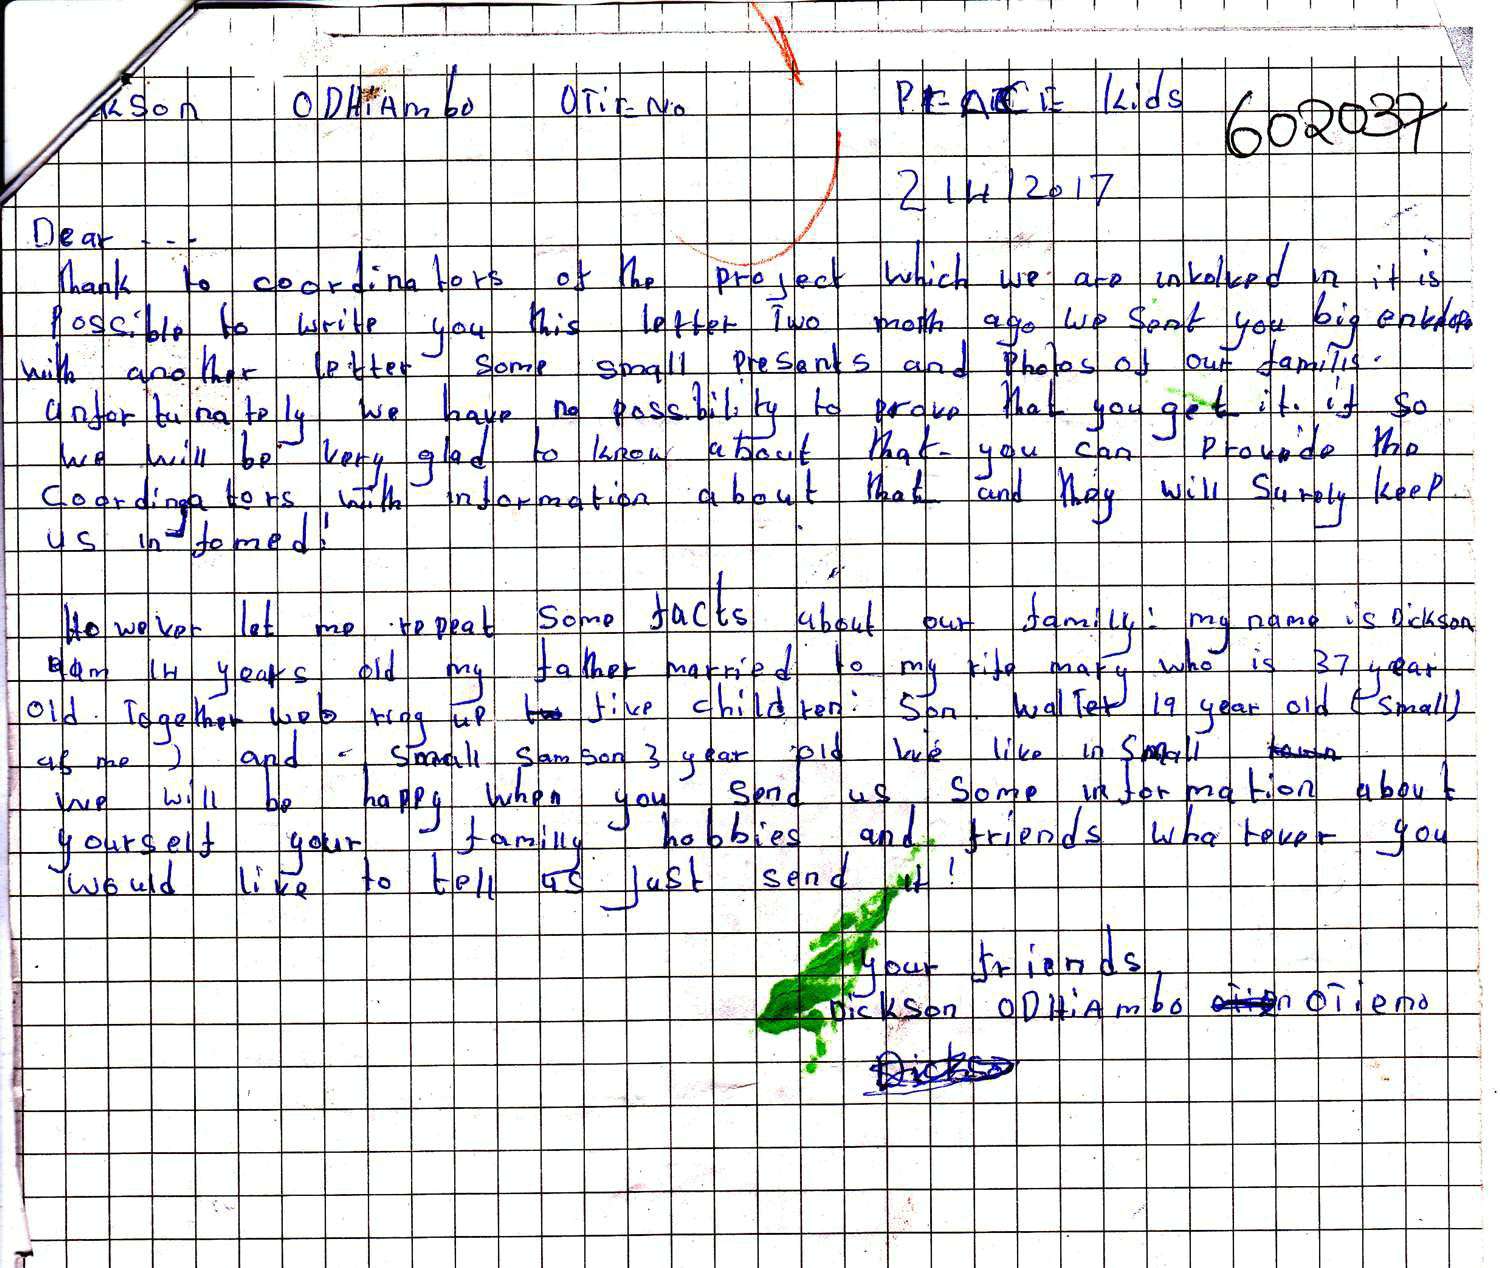 ckson ODHiAmbo OTiENo PEACE Kids
602037
2/4/2017
Dear ---
Thank to coordinators of the project which we are inkolked in it is
Possible to write you this letter Two moth ago we sent you big enkelope
with another letter some small presents and Photos of our familis.
unfortunately we have no possibility to prove that you get it. if so
we will be very glad to know about that you can provide the
Coordinators with information about that and they will surely keep
us in-fomed!
However let me repeat some facts about our familly: my name is Dickson
am 14 years old my father married to my rife mary who is 37 year
old. Together web ring up five children: Son. Walter 19 year old (small)
as me ) and - small samson 3 year old We like in small town
we will be happy when you send us some information about
yourself your familly hobbies and friends whatever you
would like to tell us just send it!
your friends,
Dickson ODHiAmbo OTieno
Dickso